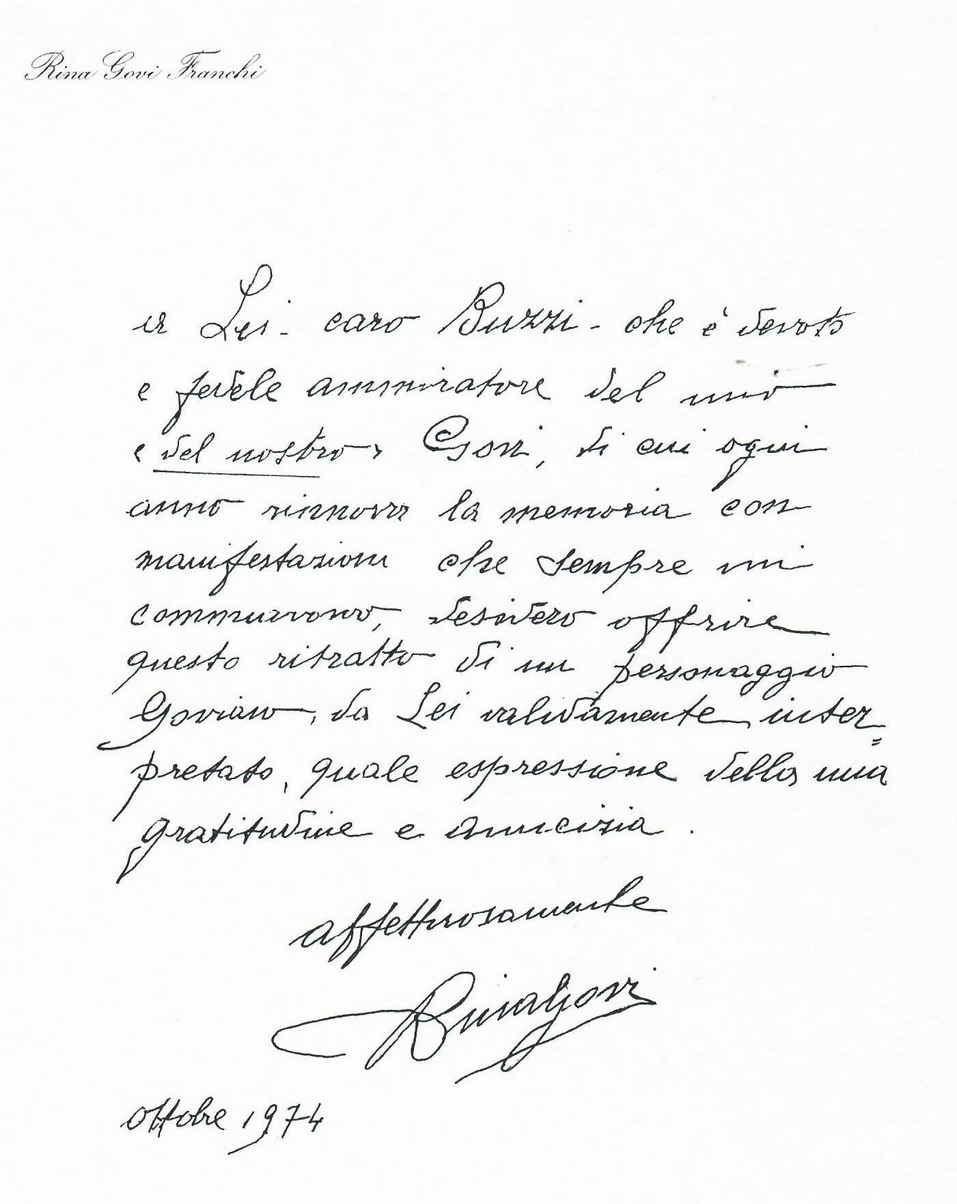 Rina Govi Franchi
a Lei - caro Buzzi - che è devoto
e fedele ammiratore del mio
"del nostro" Govi, di cui ogni
anno rinnova la memoria con
manifestazioni che sempre mi
commuovono, desidero offrire
questo ritratto di un personaggio
Goviano, da Lei validamente inter=
pretato, quale espressione della mia
gratitudine e amicizia.
affettuosamente
Rina Govi
ottobre 1974